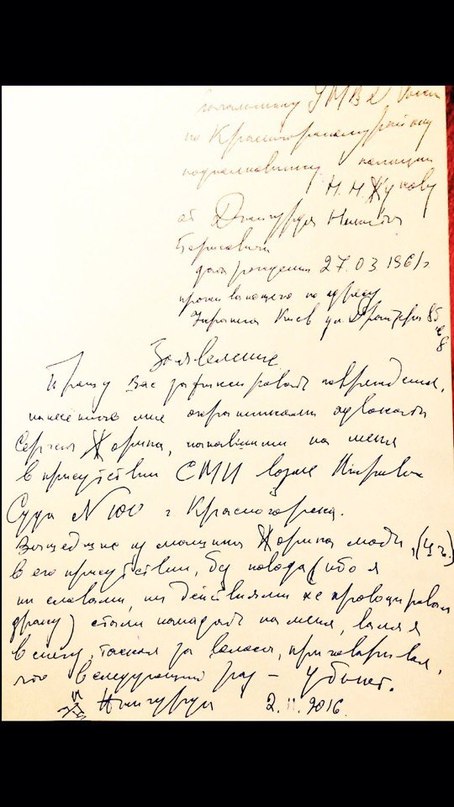 начальнику УМВД России
по Красногорскому району
подполковнику полиции
Н. Н Жукову
от Джигурда Никиты
Борисовича
дата рождения 27.03 1961г
проживающего по адресу
Украина Киев ул Франтра 85
Заявление
Прошу Вас зафиксировать повреждения,
нанесенные мне охранниками адвоката
Сергея Жорина, напавшими на меня
в присутствии СМИ возле Мирового
Суда №100 г Красногорска.
Вышедшие из машины Жорина люди, (4 ч.)
в его присутствии, без повода (ибо я
ни словами, ни действиями не провоцировал
драку) стали нападать на меня, валяя
в снегу, таская за волосы, приговаривая,
что в следующий раз – Убьют.
Джигурда 2.11.2016.